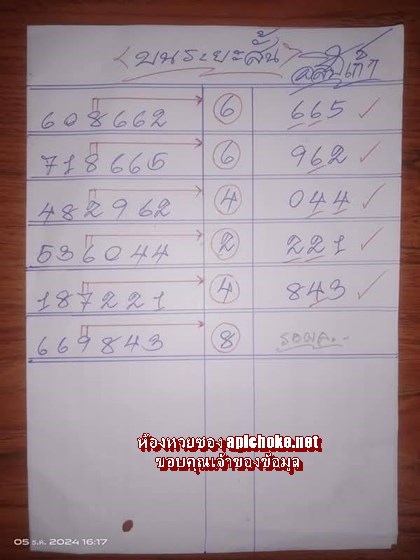 บนระยะสั้น
608662 6 665
718665 6 962
482962 4 044
536044 2 221
187221 4 843
669843 8 รอผล.-
ห้องหวยซอง apichoke.net
ขอบคุณเจ้าของข้อมูล
05 ธ.ค. 2024 16:17